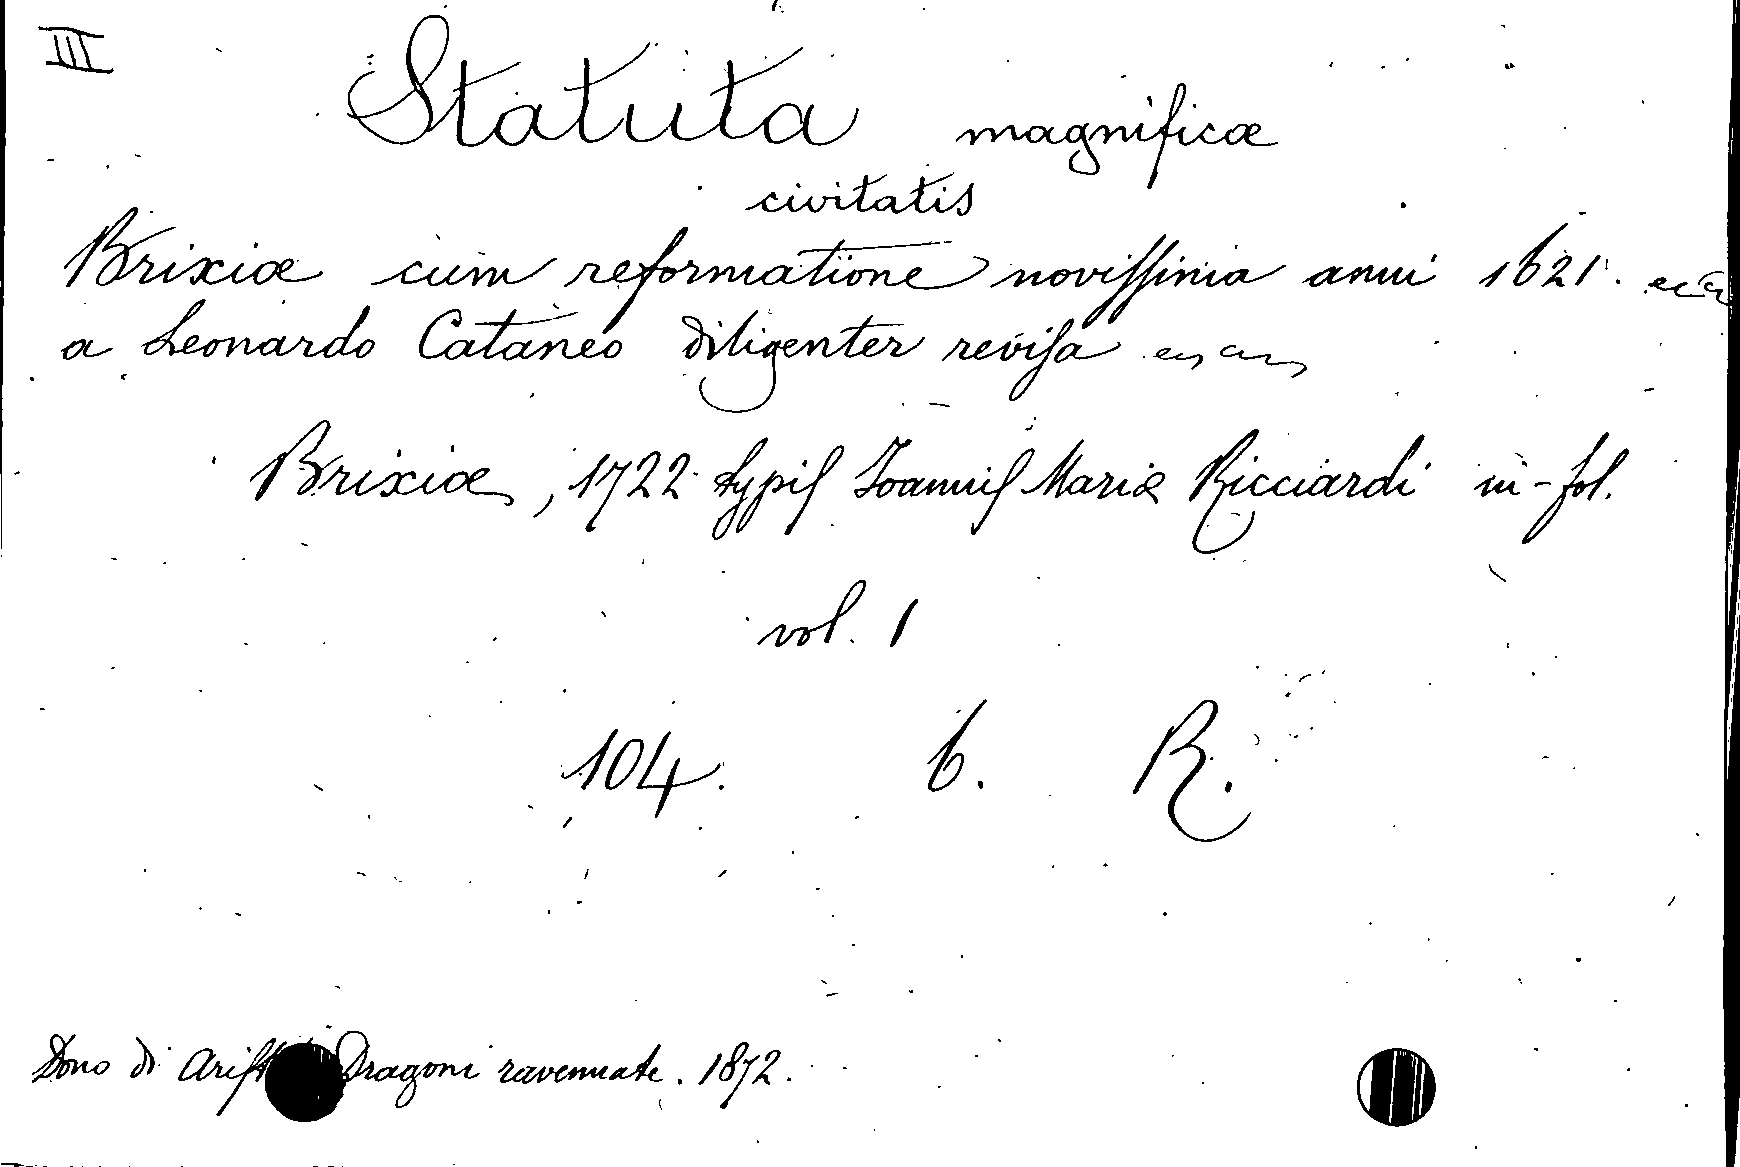 III
Statuta magnificæ
civitatis
Brixiæ cum reformatione novissima anni 1621.
a Leonardo Cataneo diligenter revisa
Brixiæ, 1722 typis Joannis Mariæ Ricciardi in-fol.
vol. 1
104. 6. R.
Dono di Dragoni ravennate. 1872.